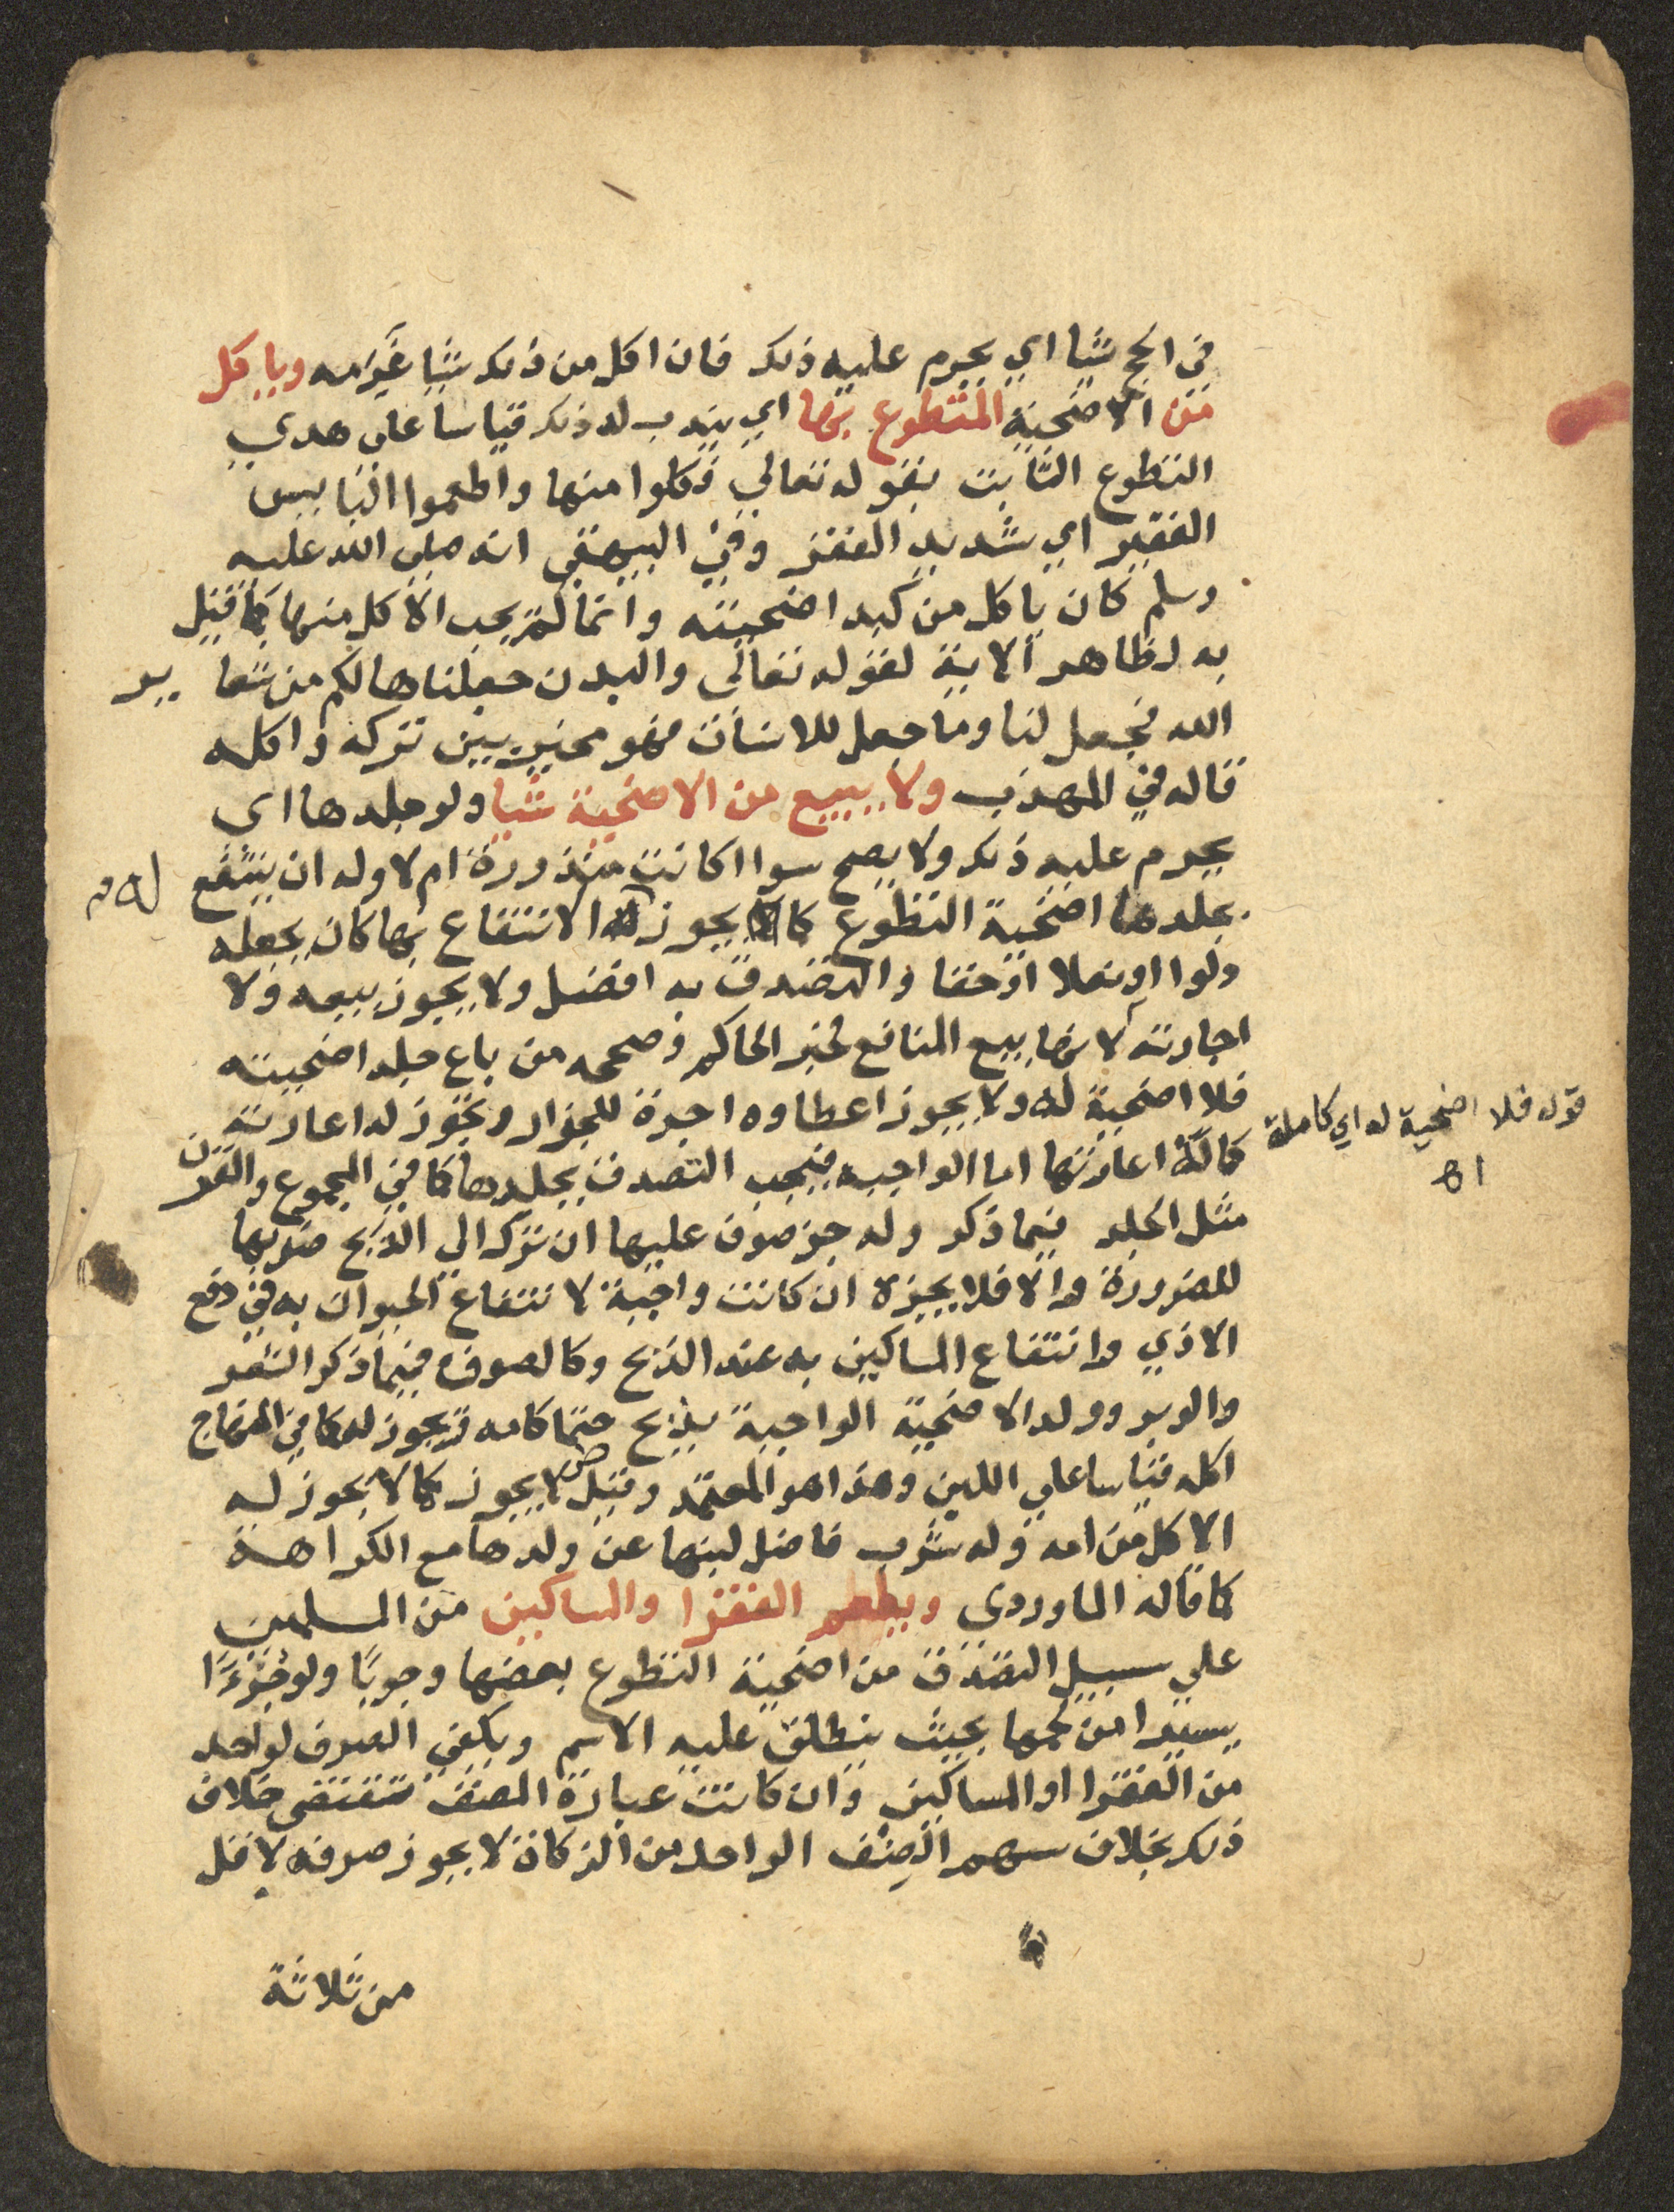 في الحج شيا اي يحرم عليه ذلك فان اكل من ذلك شيا غرمه وياكل
من الاضحية المتطوع بها اي يندب له ذلك قياسا على هدي
التطوع الثابت بقوله تعالي فكلوا منها واطعموا البايس
الفقير اي شديد الفقر وفي البيهقي انه صلى الله عليه
وسلم كان ياكل من كبد اضحيته وانما لم يجب الاكل منها كما قيل
به لظاهر الاية لقوله تعالى والبدن جعلناها لكم من شعاير
الله فجعل لنا وما جعل للانسان فهو مخير بين تركه واكله
قاله في المهذب ولا يبيع من الاضحية شيا ولو جلدها اي
يحرم عليه ذلك ولا يصح سوا اكانت منذورة ام لا وله ان ينتفع
بجلدها اضحية التطوع كما يجوز له الانتفاع بها كان يجعله
دلوا او نعلا او خفا والتصدق به افضل ولا يجوز بيعه ولا
اجارته لانها بيع المنافع لخبر الحاكم وصححه من باع جلد اضحيته
فلا اضحية له ولا يجوز اعطاوه اجرة للجزار وتجوز له اعارته
قوله فلا اضحية له اي كاملة
اه
كما له اعارتها اما الواجبه فيجب التصدق بجلدها كما في المجموع والقرن
مثل الجلد فيما ذكر وله جز صوف عليها ان ترك الي الذبح ضر بها
للضرورة والا فلا يجزه ان كانت واجبة لانتفاع الحيوان به في دفع
الاذي وانتفاع المساكين به عند الذبح وكالصوف فيما ذكر الشعر
والوبر وولد الاضحية الواجبة يذبح حتما كامه ويجوز له كما في المنهاج
اكله قياسا علي اللبن وهذا هو المعتمد وقيل لا يجوز كما لا يجوز له
الاكل من امه وله شرب فاضل لبنها عن ولدها مع الكراهة
كما قاله الماوردى ويطعم الفقرا والمساكين من المسلمين
علي سبيل التصدق من اضحية التطوع بعضها وجوبا ولو جزءا
يسيرا من لحمها بحيث ينطلق عليه الاسم ويكفي الصرف لواحد
من الفقرا او المساكين وان كانت عبارة المصنف تقتضي خلاف
ذلك بخلاف سهم الصنف الواحد من الزكاة لا يجوز صرفه لاقل
من ثلاثة